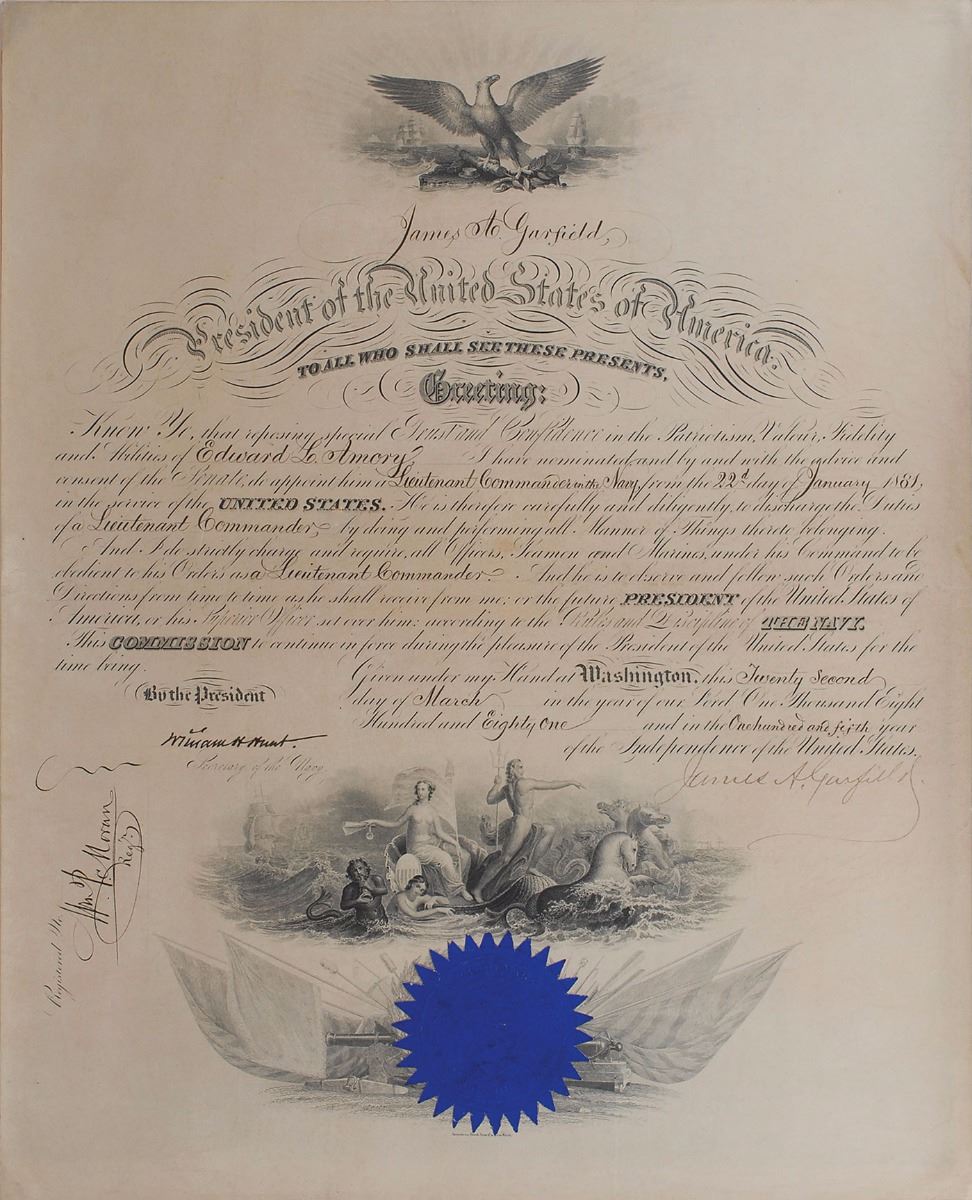 James A. Garfield,
President of the United States of America.
TO ALL WHO SHALL SEE THESE PRESENTS,
Greeting:
Know Ye, that reposing special Trust and Confidence in the Patriotism, Valour, Fidelity
and Abilities of Edward L. Amory I have nominated and by and with the advice and
consent of the Senate, do appoint him a Lieutenant Commander in the Navy from the 22d day of January 1881,
in the service of the UNITED STATES. He is therefore carefully and diligently, to discharge the Duties
of a Lieutenant Commander by doing and performing all Manner of Things thereto belonging.
And I do strictly charge and require, all Officers, Seamen and Marines, under his Command to be
obedient to his Orders as a Lieutenant Commander. And he is to observe and follow such Orders and
Directions from time to time as he shall receive from me; or the future PRESIDENT of the United States of
America, or his Superior Officer set over him; according to the Rules and Discipline of THE NAVY.
This COMMISSION to continue in force during the pleasure of the President of the United States for the
time being.
Given under my Hand at Washington, this Twenty Second
day of March in the year of our Lord One Thousand Eight
Hundred and Eighty One and in the One hundred and fifth year
of the Independence of the United States.
By the President
William H Hunt.
Secretary of the Navy.
James A. Garfield
Registered No.
Wm P Moran
Regr.